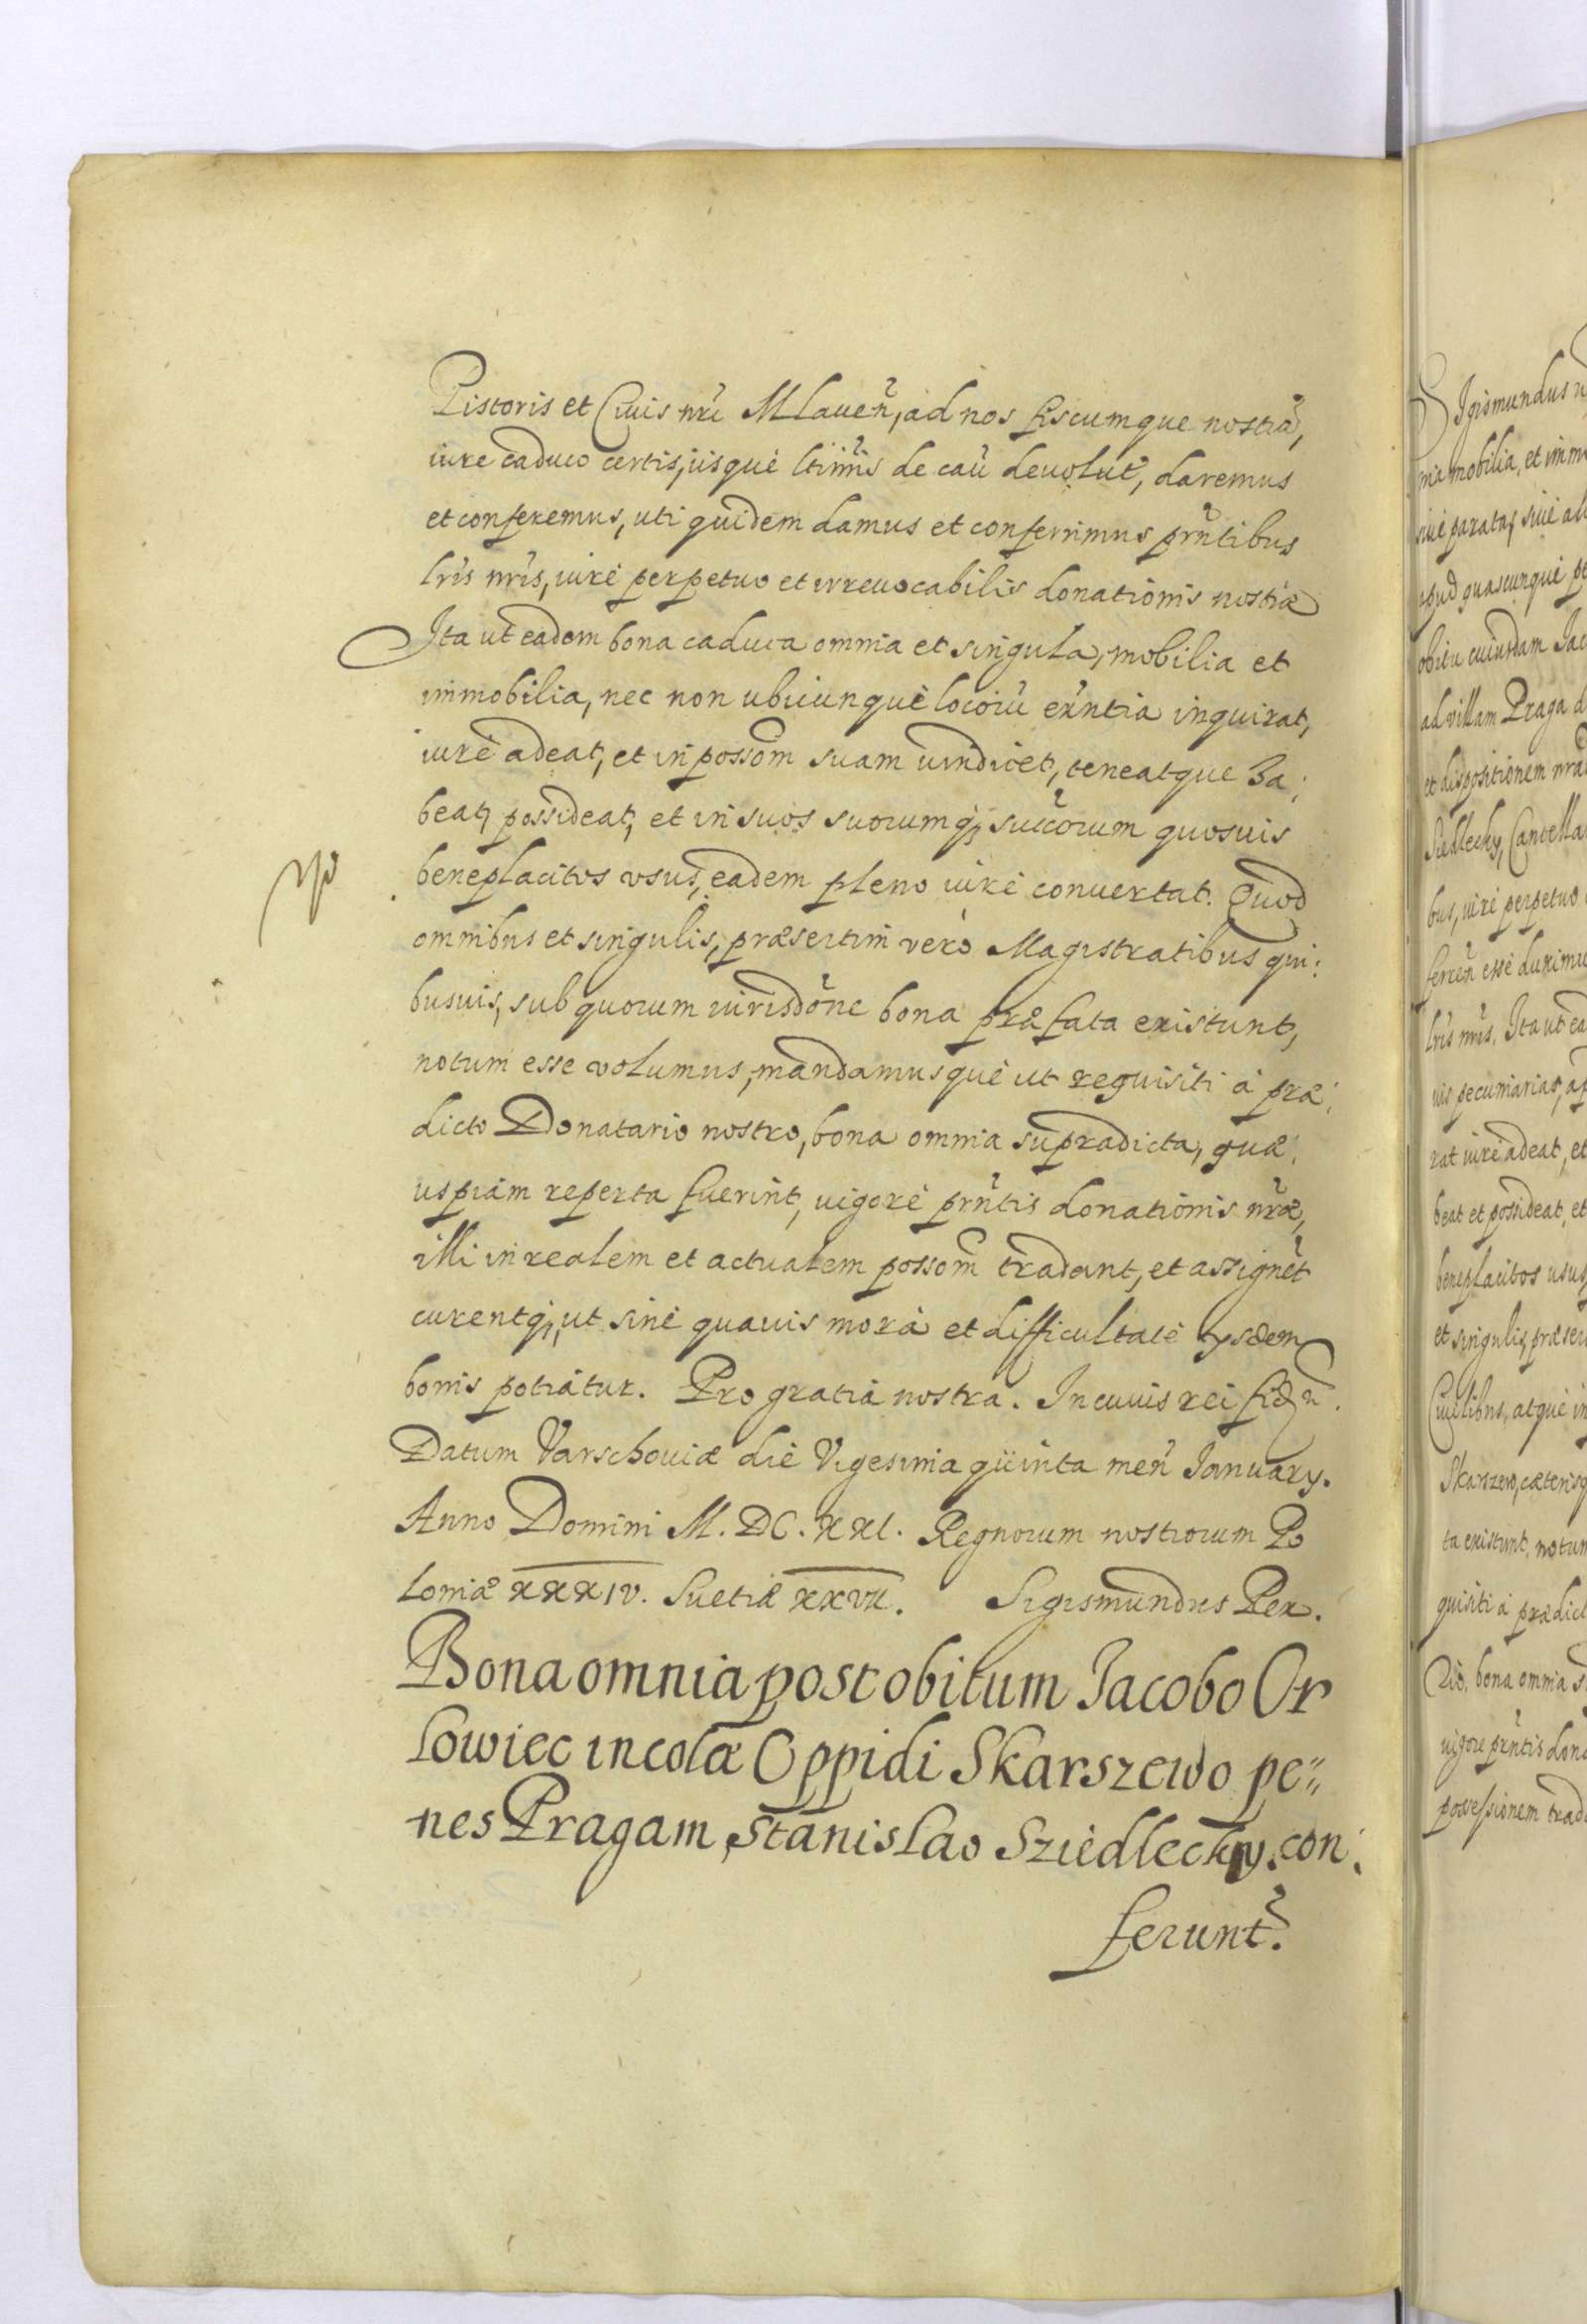 Pistoris et Ciuis nr̃i Mlaueñ, ad nos fiscumque nostrã,
iure caduco certis, iisquè ltim̃is de caũ deuolut̃, daremus
et conferemus, uti quidem damus et conferrimus prñtibus
lr̃is nr̃is, iurè perpetuo et irreuocabilis donationis nostræ
Ita ut eadem bona caduca omnia et singula, mobilia et
immobilia, nec non ubicunquè locorũ exñtia inquirat,
iurè adeat, et in possom̃ suam uindicet, teneatque ha:
beat, possideat, et in suos suorumq; succ̃orum quosuis
beneplacitos usus, eadem pleno iurè conuertat. Quod
omnibus et singulis, præsertim verò Magistratibus qui:
busuis, sub quorum iurisdõne bona præfata existunt,
notum esse volumus, mandamusquè ut requisiti à præ:
dicto Donatario nostro, bona omnia supradicta, quæ:
uspiam reperta fuerint, uigorè prñtis donationis nr̃æ,
illi in realem et actualem possom̃ tradant, et assignẽt
curentq;, ut sinè quauis morà et difficultatè iysdem
bonis potiatur. Pro gratia nostra. In cuius rei fid ũ.
Datum Varschouiæ diè Vigesima quinta meñ January.
Anno Domini M. DC. XXI. Regnorum nostrorum Po
loniæ XXXIV. Suetiæ XXVII. Sigismundus Rex.
Bona omnia post obitum Jacobo Or
lowiec incolæ Oppidi Skarszewo pe"
nes Pragam, Stanislao Sziedlecky. con:
ferunt̃.
Sigismundus
mia mobilia, et imm
siuè paratas, siuè al
apud quascunquè pe
obitu cuiusdam Jac
ad villam Praga d
et dispositionem nrã
Siedlecky, Cancella
bus, iurè perpetuo
ferreñ essè duximu
lr̃is nr̃is. Ita ut ea
uis pecuniarias, ap
rat iurè adeat, et
beat et possideat, et
beneplacitos usus
et singulis, præser
Ciuilibus, atquè in
Skarszewo, cæterisq
ta existunt, notum
quisiti à prædict
rio, bona omnia s
uigore prñtis dona
possessionem trada